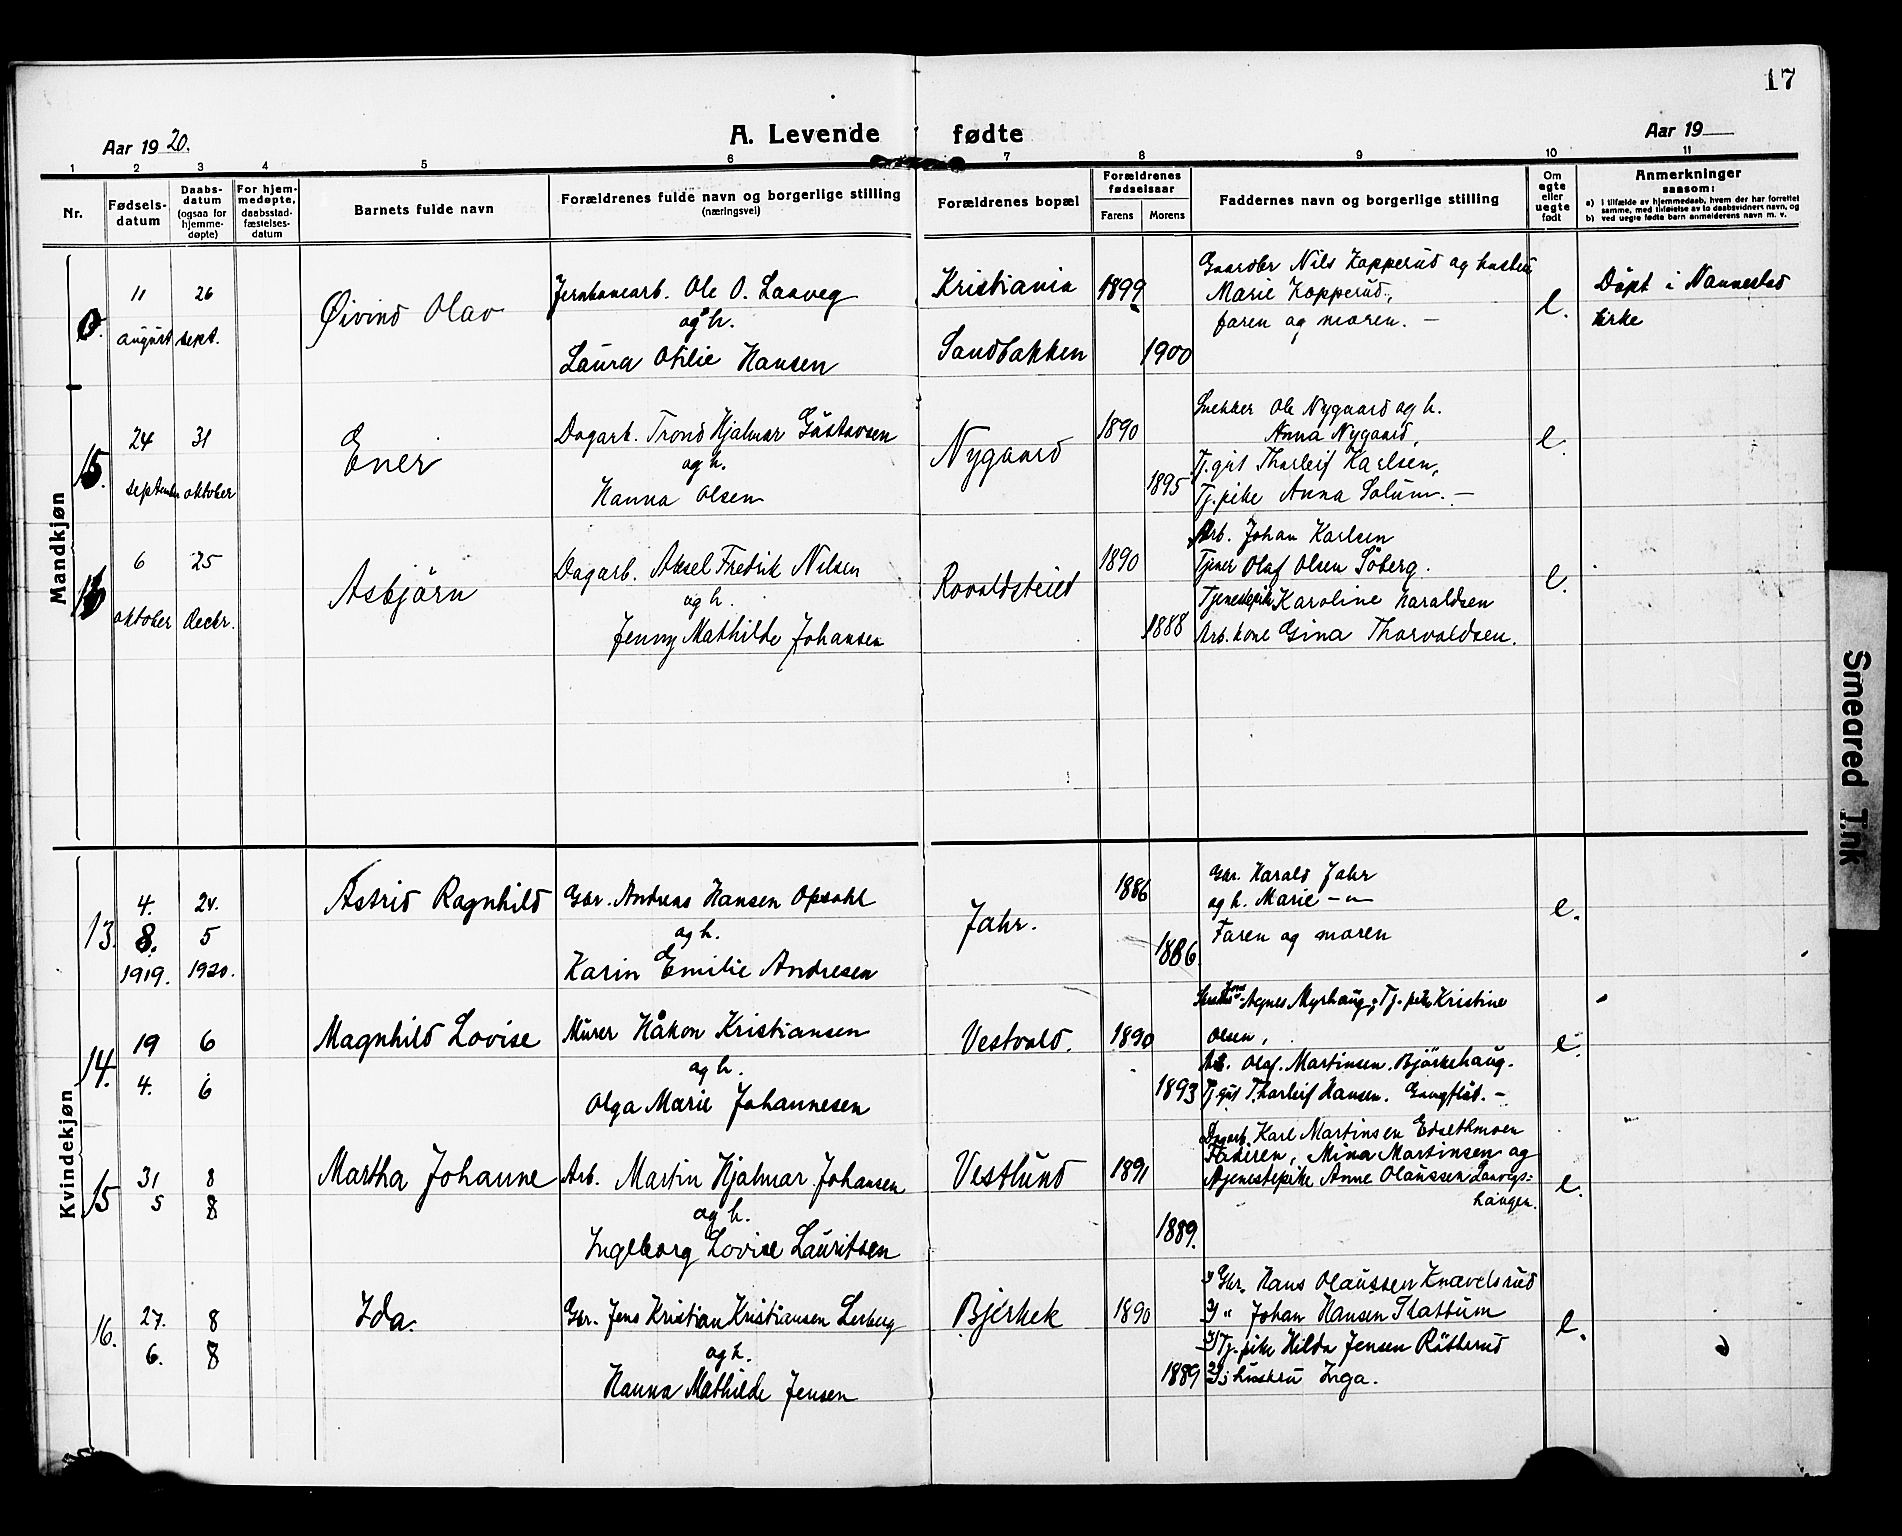 17
Aar 1920.
A. Levende fødte
Aar 19
1 2 3 4 5 6 7 8 9 10 11
Nr.
Fødsels-
datum
Daabs-
datum
(ogsaa for
hjemme-
døpte)
For hjem-
medøpte,
daabsstad-
fæstelses-
datum
Barnets fulde navn
Forældrenes fulde navn og borgerlige stilling
(næringsvei)
Forældrenes bopæl
Forældrenes
fødselsaar
Farens Morens
Faddernes navn og borgerlige stilling
Om
ægte
eller
uægte
født
Anmerkninger
saasom:
a) i tilfælde av hjemmedaab, hvem der har forrettet
samme, med tilføielse av to daabsvidners navn, og
b) ved uegte fødte barn anmelderens navn m. v.
Mandkjøn
11 august
26 sept.
Øivind Olav
Jernbanearb. Ole O. Laaveg
og h.
Laura Otilie Hansen
Kristiania
Sandbakken
1899
1900
Gaardbr Nils Kopperud og hustru
Marie Kopperud,
faren og moren. —
e.
Døpt i Nannestad
kirke
15.
24 september
31 oktober
Ener
Dagarb. Trond Hjalmar Gustavsen
og h.
Hanna Olsen
Nygaard
1890
1895
Snekker Ole Nygaard og h.
Anna Nygaard,
Tj.gut Tharleif Karlsen,
Tj.pike Anna Solum. —
e.
16
6 oktober
25 decbr.
Asbjörn
Dagarb. Aksel Fredrik Nilsen
og h.
Jenny Mathilde Johansen
Rovoldsteiet
1890
1888
Arb. Johan Karlsen
Tjener Olaf Olsen Söberg.
Tjenestepike Karoline Haraldsen
Arb. kone Gina Thorvaldsen.
e.
Kvindekjøn
13.
4.
8.
1919.
24.
5
1920.
Astrid Ragnhild
Gbr. Andreas Hansen Opsahl
og h.
Karin Emilie Andresen
Jahr.
1886
1886
Gbr. Harald Jahr
og h. Marie — " —
Faren og moren
e.
14.
19
4.
6
6
Magnhild Lovise
Murer Håkon Kristiansen
og h.
Olga Marie Johannesen
Vestvold.
1890
1893
Agnes Myrhaug, Tj. pike Kristine
Olsen,
Arb. Olaf Martinsen Björkehaug.
Tj.gut Tharleif Hansen. —
e.
15
31
5
8
8
Martha Johanne
Arb. Martin Hjalmar Johansen
og h.
Ingeborg Lovise Lauritsen
Vestlund
1891
1889.
Dagarb. Karl Martinsen Edsethmoen
Mina Martinsen og
Tjenestepike Anne Olaussen Laavegs-
haugen.
e.
16.
27.
6.
8
8
Ida.
Gbr. Jens Kristian Kristiansen Lerberg
og h.
Hanna Mathilde Jensen
Bjerkek
1890
1889
1) Gbr. Hans Olaussen Knavelsrud
2) " Johan Hansen Slattum
3) Tj. pike Hilda Jensen Råtterud
2) s hustru Inga.
e.
Smeared Ink